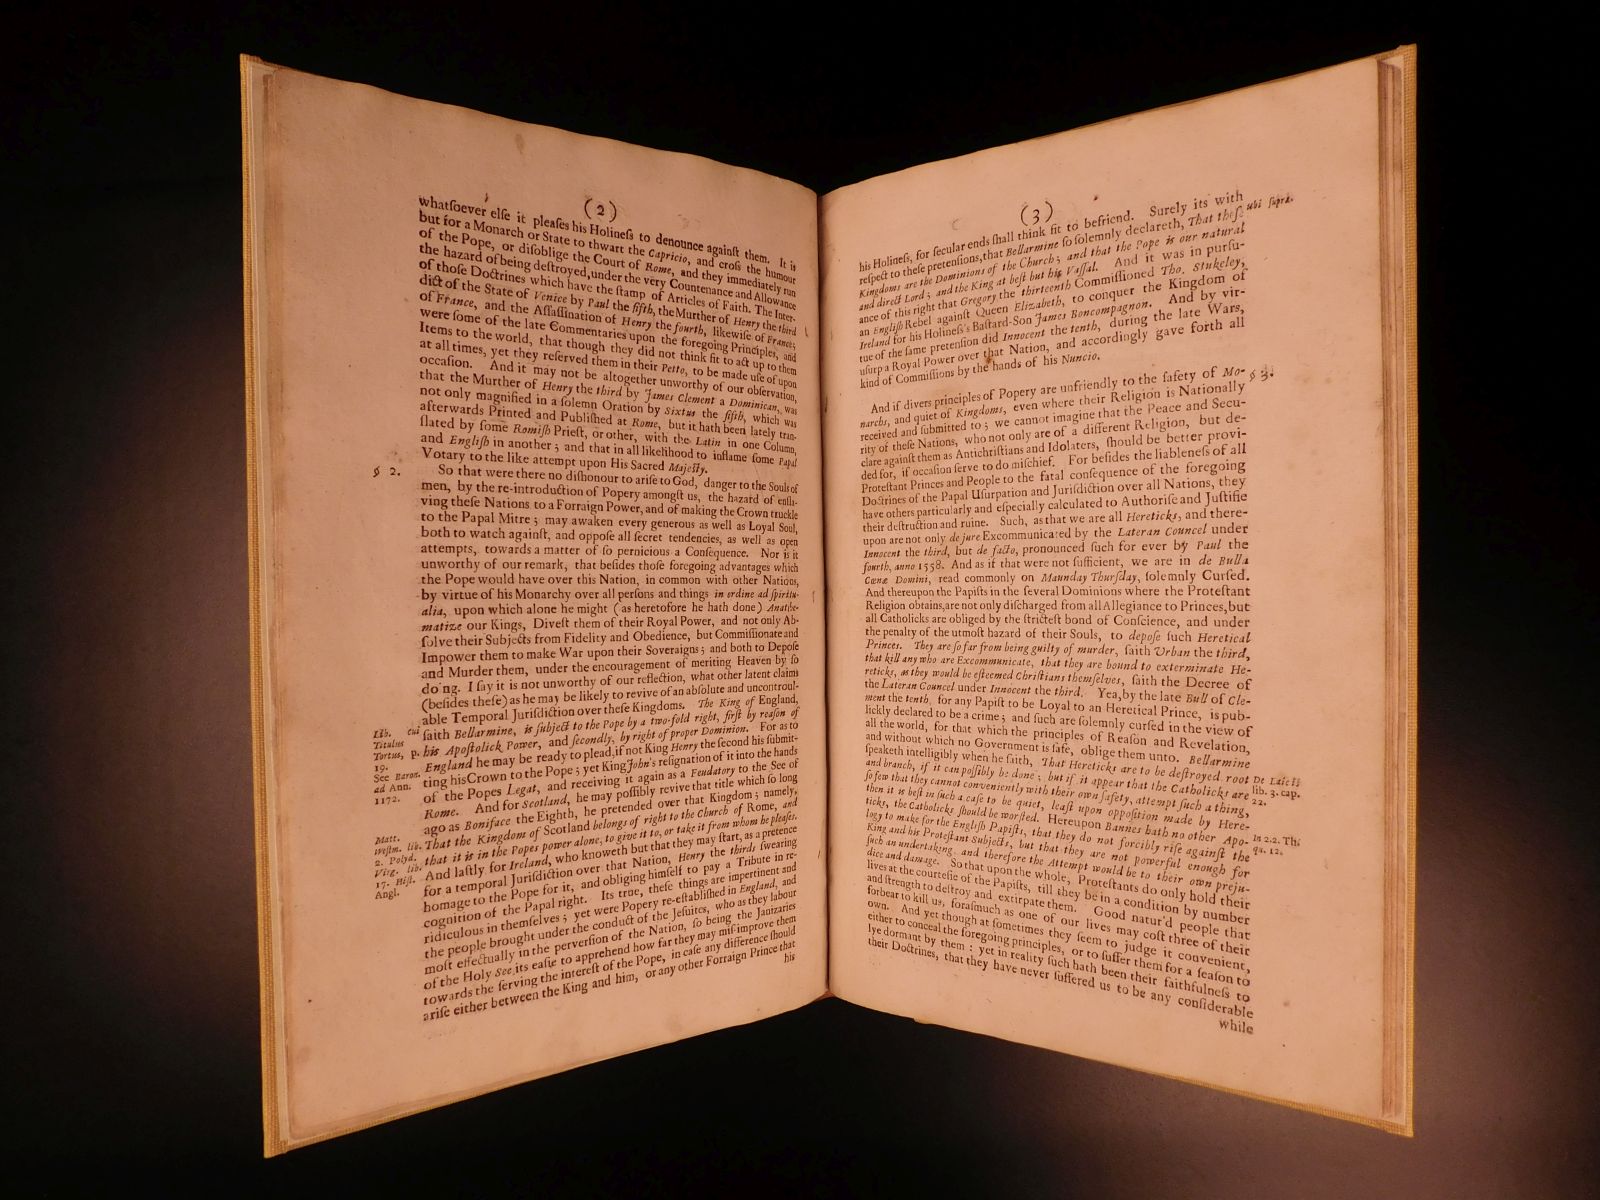 (2)
whatſoever elſe it pleaſes his Holineſs to denounce againſt them. It is
but for a Monarch or State to thwart the Capricio, and croſs the humour
of the Pope, or diſoblige the Court of Rome, and they immediately run
the hazard of being deſtroyed, under the very Countenance and Allowance
of thoſe Doctrines which have the ſtamp of Articles of Faith. The Inter-
dict of the State of Venice by Paul the fifth, the Murther of Henry the third
of France, and the Aſſaſſination of Henry the fourth, likewiſe of France;
were ſome of the late Commentaries upon the foregoing Principles, and
Items to the world, that though they did not think fit to act up to them
at all times, yet they reſerved them in their Petto, to be made uſe of upon
occaſion. And it may not be altogether unworthy of our obſervation,
that the Murther of Henry the third by James Clement a Dominican, was
not only magnified in a ſolemn Oration by Sixtus the fifth, which was
afterwards Printed and Publiſhed at Rome, but it hath been lately tran-
ſlated by ſome Romiſh Prieſt, or other, with the Latin in one Column,
and Engliſh in another; and that in all likelihood to inflame ſome Papal
Votary to the like attempt upon His Sacred Majeſty.
§ 2. So that were there no diſhonour to ariſe to God, danger to the Souls of
men, by the re-introduction of Popery amongſt us, the hazard of enſla-
ving theſe Nations to a Forraign Power, and of making the Crown truckle
to the Papal Mitre; may awaken every generous as well as Loyal Soul,
both to watch againſt, and oppoſe all ſecret tendencies, as well as open
attempts, towards a matter of ſo pernicious a Conſequence. Nor is it
unworthy of our remark, that beſides thoſe foregoing advantages which
the Pope would have over this Nation, in common with other Nations,
by virtue of his Monarchy over all perſons and things in ordine ad ſpiritu-
alia, upon which alone he might (as heretofore he hath done) Anathe-
matize our Kings, Diveſt them of their Royal Power, and not only Ab-
ſolve their Subjects from Fidelity and Obedience, but Commiſſionate and
Impower them to make War upon their Soveraigns; and both to Depoſe
and Murder them, under the encouragement of meriting Heaven by ſo
doing. I ſay it is not unworthy of our reflection, what other latent claims
(beſides theſe) as he may be likely to revive of an abſolute and uncontroul-
able Temporal Juriſdiction over theſe Kingdoms. The King of England,
ſaith Bellarmine, is ſubject to the Pope by a two-fold right, firſt by reaſon of
his Apoſtolick Power, and ſecondly, by right of proper Dominion. For as to
England he may be ready to plead, if not King Henry the ſecond his ſubmit-
ting his Crown to the Pope; yet King John's reſignation of it into the hands
of the Popes Legat, and receiving it again as a Feudatory to the See of
Rome. And for Scotland, he may poſſibly revive that title which ſo long
ago as Boniface the Eighth, he pretended over that Kingdom; namely,
That the Kingdom of Scotland belongs of right to the Church of Rome, and
that it is in the Popes power alone, to give it to, or take it from whom he pleaſes.
And laſtly for Ireland, who knoweth but that they may ſtart, as a pretence
for a temporal Juriſdiction over that Nation, Henry the thirds ſwearing
homage to the Pope for it, and obliging himſelf to pay a Tribute in re-
cognition of the Papal right. Its true, theſe things are impertinent and
ridiculous in themſelves; yet were Popery re-eſtabliſhed in England, and
the people brought under the conduct of the Jeſuites, who as they labour
moſt effectually in the perverſion of the Nation, ſo being the Janizaries
of the Holy See, its eaſie to apprehend how far they may miſ-improve them
towards the ſerving the intereſt of the Pope, in caſe any difference ſhould
ariſe either between the King and him, or any other Forraign Prince that
his
Lib. cui
Titulus
Tortus, p.
19.
See Baron.
ad Ann.
1172.
Matt.
Weſtm. lib.
2. Polyd.
Virg. lib.
17. Hiſt.
Angl.
(3)
his Holineſs, for ſecular ends ſhall think fit to befriend. Surely its with
reſpect to theſe pretenſions, that Bellarmine ſo ſolemnly declareth, That theſe
Kingdoms are the Dominions of the Church; and that the Pope is our natural
and direct Lord; and the King at beſt but his Vaſſal. And it was in purſu-
ance of this right that Gregory the thirteenth Commiſſioned Tho. Stukeley,
an Engliſh Rebel againſt Queen Elizabeth, to conquer the Kingdom of
Ireland for his Holineſs's Baſtard-Son James Boncompagnon. And by vir-
tue of the ſame pretenſion did Innocent the tenth, during the late Wars,
uſurp a Royal Power over that Nation, and accordingly gave forth all
kind of Commiſſions by the hands of his Nuncio.
ubi ſupra.
And if divers principles of Popery are unfriendly to the ſafety of Mo- § 3.
narchs, and quiet of Kingdoms, even where their Religion is Nationally
received and ſubmitted to; we cannot imagine that the Peace and Secu-
rity of theſe Nations, who not only are of a different Religion, but de-
clare againſt them as Antichriſtians and Idolaters, ſhould be better provi-
ded for, if occaſion ſerve to do miſchief. For beſides the liableneſs of all
Proteſtant Princes and People to the fatal conſequence of the foregoing
Doctrines of the Papal Uſurpation and Juriſdiction over all Nations, they
have others particularly and eſpecially calculated to Authoriſe and Juſtifie
their deſtruction and ruine. Such, as that we are all Hereticks, and there-
upon are not only de jure Excommunicated by the Lateran Councel under
Innocent the third, but de facto, pronounced ſuch for ever by Paul the
fourth, anno 1558. And as if that were not ſufficient, we are in de Bulla
Cœnæ Domini, read commonly on Maunday Thurſday, ſolemnly Curſed.
And thereupon the Papiſts in the ſeveral Dominions where the Proteſtant
Religion obtains, are not only diſcharged from all Allegiance to Princes, but
all Catholicks are obliged by the ſtricteſt bond of Conſcience, and under
the penalty of the utmoſt hazard of their Souls, to depoſe ſuch Heretical
Princes. They are ſo far from being guilty of murder, ſaith Urban the third,
that kill any who are Excommunicate, that they are bound to exterminate He-
reticks, as they would be eſteemed Chriſtians themſelves, ſaith the Decree of
the Lateran Councel under Innocent the third. Yea, by the late Bull of Cle-
ment the tenth, for any Papiſt to be Loyal to an Heretical Prince, is pub-
lickly declared to be a crime; and ſuch are ſolemnly curſed in the view of
all the world, for that which the principles of Reaſon and Revelation,
and without which no Government is ſafe, oblige them unto. Bellarmine
ſpeaketh intelligibly when he ſaith, That Hereticks are to be deſtroyed root
and branch, if it can poſſibly be done; but if it appear that the Catholicks are
ſo few that they cannot conveniently with their own ſafety, attempt ſuch a thing,
then it is beſt in ſuch a caſe to be quiet, leaſt upon oppoſition made by Here-
ticks, the Catholicks ſhould be worſted. Hereupon Bannes hath no other Apo-
logy to make for the Engliſh Papiſts, that they do not forcibly riſe againſt the
King and his Proteſtant Subjects, but that they are not powerful enough for
ſuch an undertaking, and therefore the Attempt would be to their own preju-
dice and damage. So that upon the whole, Proteſtants do only hold their
lives at the courteſie of the Papiſts, till they be in a condition by number
and ſtrength to deſtroy and extirpate them. Good natur'd people that
forbear to kill us, foraſmuch as one of our lives may coſt three of their
own. And yet though at ſometimes they ſeem to judge it convenient,
either to conceal the foregoing principles, or to ſuffer them for a ſeaſon to
lye dormant by them: yet in reality ſuch hath been their faithfulneſs to
their Doctrines, that they have never ſuffered us to be any conſiderable
while
De Laicis
lib. 3. cap.
22.
In 2.2. Th.
qu. 12.